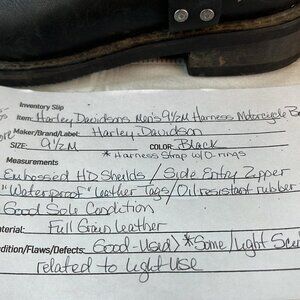 Inventory Slip
Item: Harley Davidsons Men's 9½ M Harness Motorcycle Bo
Maker/Brand/Label: Harley Davidson
SIZE: 9½M COLOR: Black
*Harness Strap w/O-rings
Measurements
Embossed HD Sheilds / Side Entry Zipper
"Waterproof" leather Tags/Oil resistant rubber
Good Sole Condition
terial: Full Grain leather
ndition/Flaws/Defects: Good-Used> *Some/Light Scu
related to light use